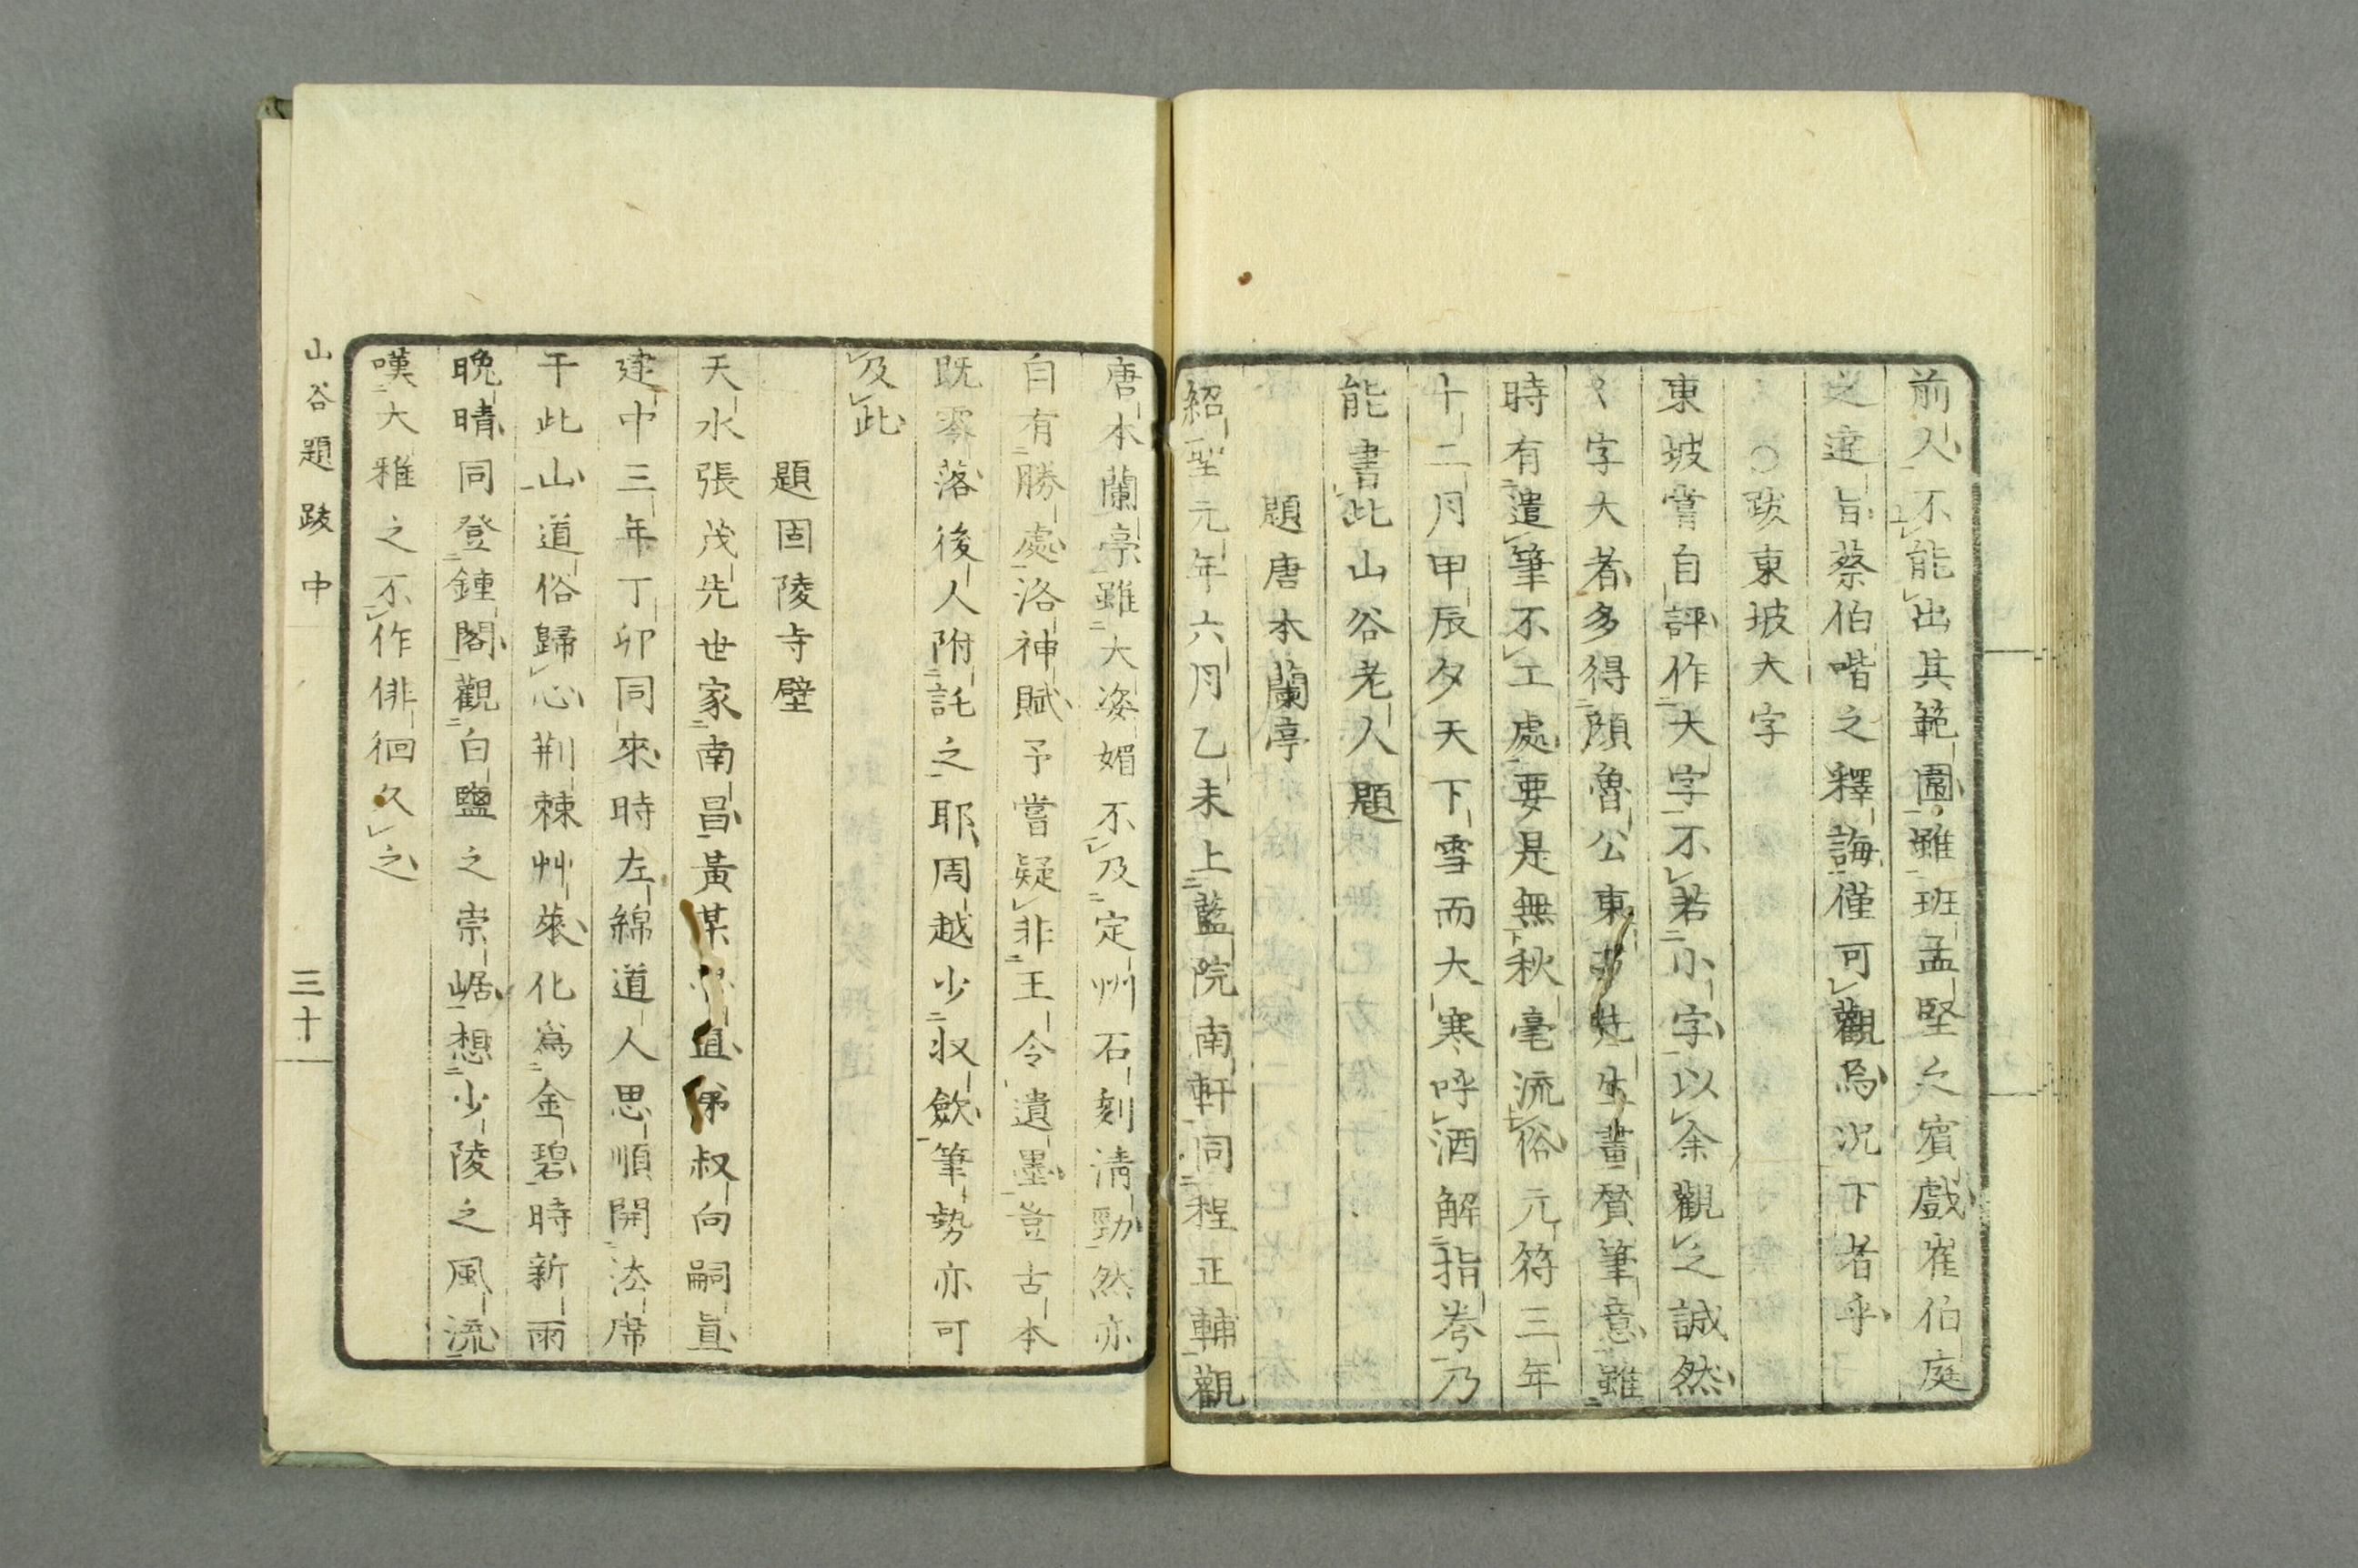 前人不能出其範圍雖班孟堅之賓戲崔伯庭
之達旨蔡伯喈之釋誨僅可觀焉況下者乎
○跋東坡大字
東坡嘗自評作大字不若小字以余觀之誠然
〻字大者多得顔魯公東方先生畫賛筆意雖
時有遣筆不工處要是無秋毫流俗元符三年
十二月甲辰夕天下雪而大寒呼酒解指拳乃
能書此山谷老人題
題唐本蘭亭
紹聖元年六月乙未上藍院南軒同程正輔觀
唐本蘭亭雖大姿媚不及定州石刻清勁然亦
自有勝處洛神賦予嘗疑非王令遺墨豈古本
既零落後人附託之耶周越少収斂筆勢亦可
及此
題固陵寺壁
天水張茂先世家南昌黃某直弟叔向嗣直
建中三年丁卯同來時左綿道人思順開法席
干此山道俗歸心荊棘艸萊化爲金碧時新雨
晩晴同登鍾閣觀白鹽之崇崛想少陵之風流
嘆大雅之不作俳徊久之
山谷題跋中
三十